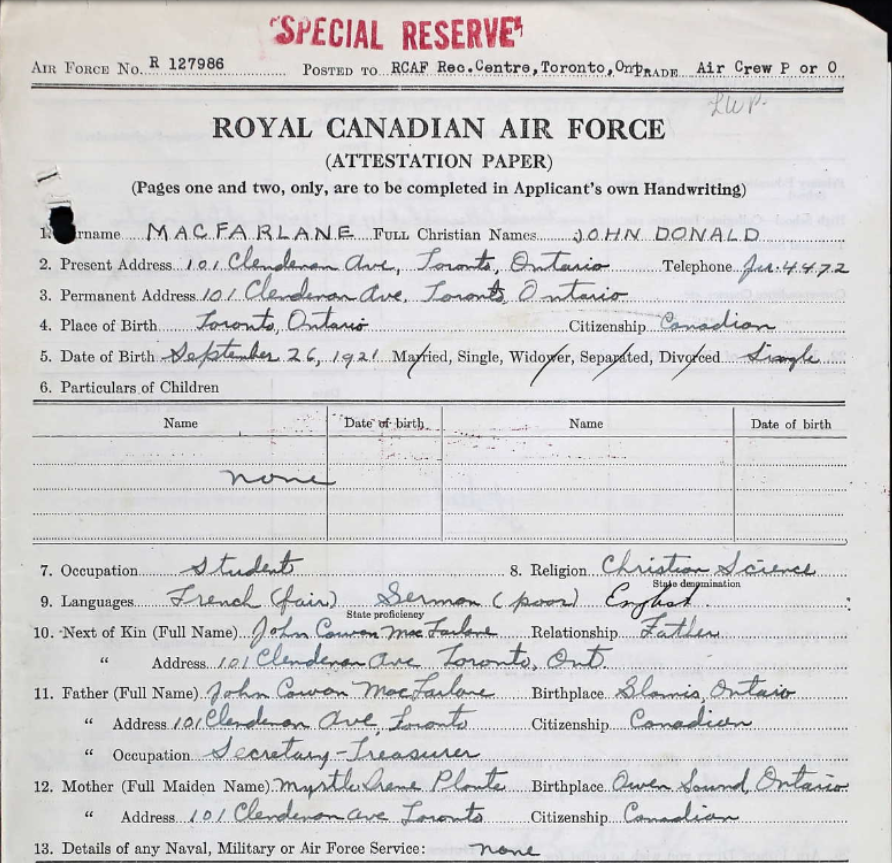 "SPECIAL RESERVE"
AIR FORCE NO. R 127986 POSTED TO RCAF Rec.Centre,Toronto,Ont TRADE Air Crew P or O
ROYAL CANADIAN AIR FORCE
(ATTESTATION PAPER)
(Pages one and two, only, are to be completed in Applicant's own Handwriting)
1. rname MACFARLANE FULL Christian Names JOHN DONALD
2. Present Address 101 Clendenan Ave, Toronto, Ontario Telephone Ju. 4472
3. Permanent Address 101 Clendenan Ave, Toronto, Ontario
4. Place of Birth Toronto, Ontario Citizenship Canadian
5. Date of Birth September 26, 1921 Married, Single, Widower, Separated, Divorced Single
6. Particulars of Children
Name Date of birth Name Date of birth
none
7. Occupation Student 8. Religion Christian Science
State denomination
9. Languages French (fair) German (poor) English.
State proficiency
10. Next of Kin (Full Name) John Cowan MacFarlane Relationship Father
" Address 101 Clendenan Ave Toronto, Ont.
11. Father (Full Name) John Cowan MacFarlane Birthplace Glamis, Ontario
" Address 101 Clendenan Ave, Toronto Citizenship Canadian
" Occupation Secretary-Treasurer
12. Mother (Full Maiden Name) Myrtle Irene Birthplace Owen Sound, Ontario
" Address 101 Clendenan Ave Toronto Citizenship Canadian
13. Details of any Naval, Military or Air Force Service: none